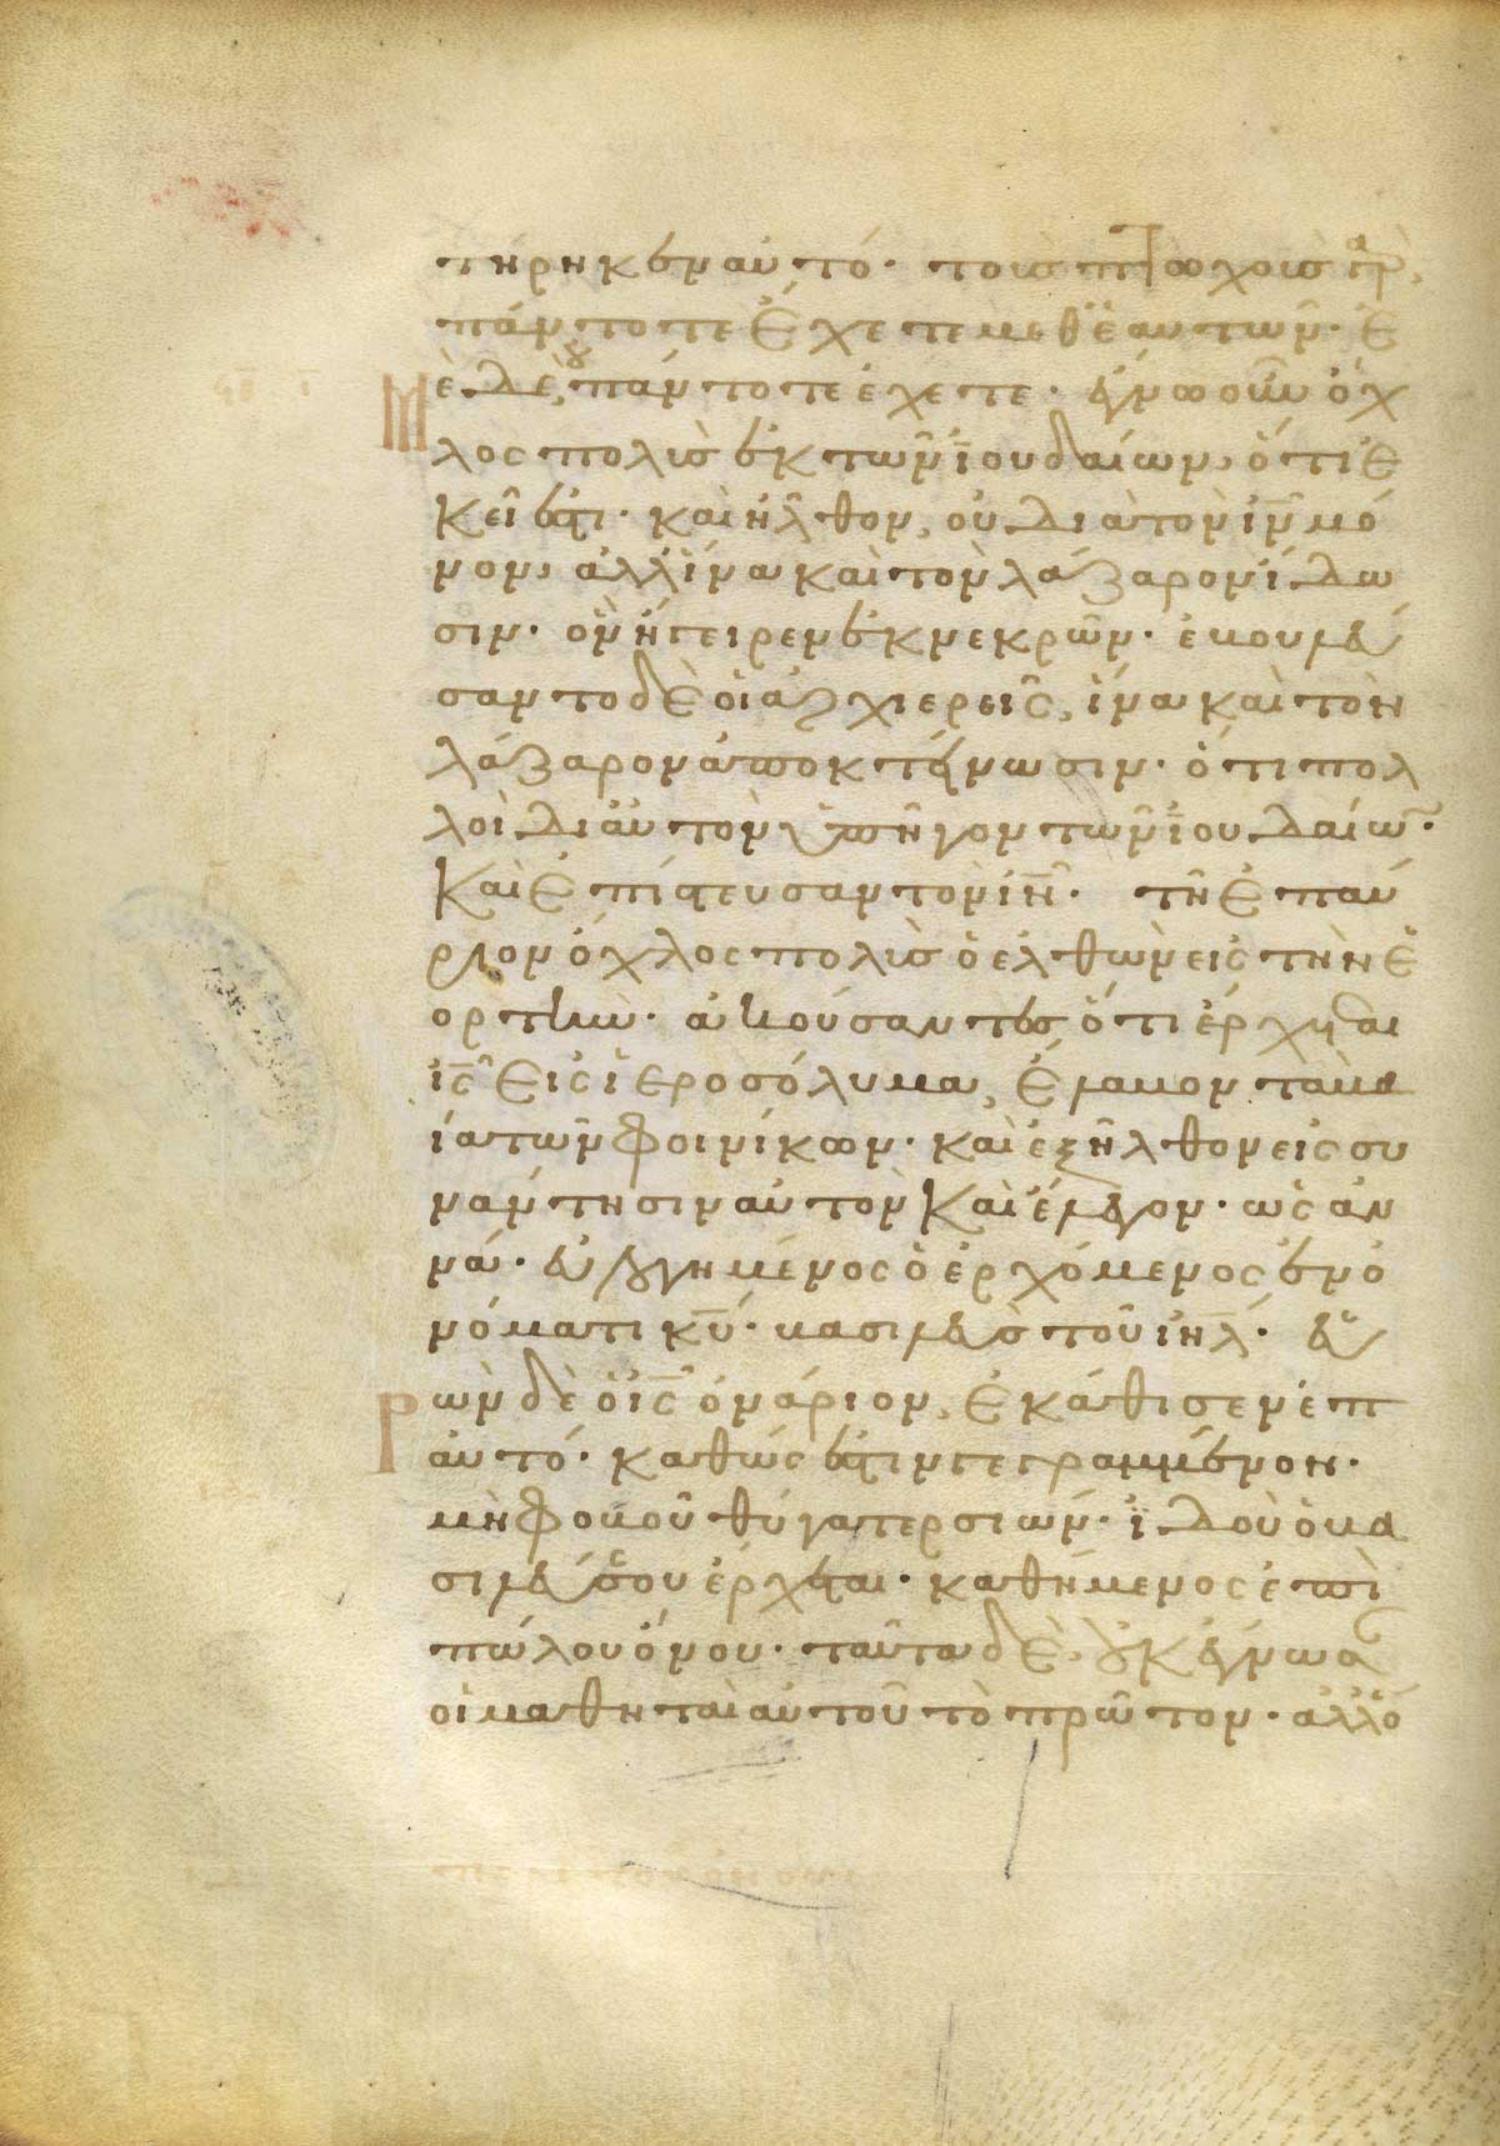 τήρηκεν αὐτό· τοὺς πτωχοὺς γὰρ,
πάντοτε ἔχετε μεθ ἑαυτῶν· ἐ
μὲ δὲ, οὐ πάντοτε ἔχετε· ἔγνω οὖν ὄχ
λος πολὺς ἐκ τῶν ἰουδαίων, ὅτι ἐ
κεῖ ἐστι· καὶ ἦλθον, οὐ διὰ τὸν ἰν μό
νον, ἀλλ ἵνα καὶ τὸν λάζαρον ἴδω
σιν· ὃν ἤγειρεν ἐκ νεκρῶν· ἐβουλεύ
σαντο δὲ οἱ ἀρχιερεῖς, ἵνα καὶ τὸν
λάζαρον ἀποκτείνωσιν· ὅτι πολ
λοὶ δι αὐτὸν ὑπῆγον τῶν ἰουδαίω·
Καὶ ἐπίστευσαν τὸν ἰν· τῇ ἐπαύ
ριον ὄχλος πολὺς ὁ ἐλθὼν εἰς τὴν ἑ
ορτὴν· ἀκούσαντες ὅτι ἔρχεται
ἰς εἰς ἱεροσόλυμα, ἔλαβον τὰ βα
ΐα τῶν φοινίκων· καὶ ἐξῆλθον εἰς συ
νάντησιν αὐτὸν καὶ ἔλεγον· ὡς ἀν
νά· εὐλογημένος ὁ ἐρχόμενος ἐν ὀ
νόματι κυ· βασιλεὺς τοῦ ἰηλ· εὑ
ρὼν δὲ ὁ ἰς ὀνάριον, ἐκάθισεν ἐπ
αὐτό· καθώς ἐστιν γεγραμμένον·
μὴ φοβοῦ θύγατερ σιών· ἰδοὺ ὁ βα
σιλεύς σου ἔρχεται· καθήμενος ἐπὶ
πώλου ὄνου· ταῦτα δὲ, οὐκ ἔγνωσ
οἱ μαθηταὶ αὐτοῦ τὸ πρῶτον· ἀλλ ὅ